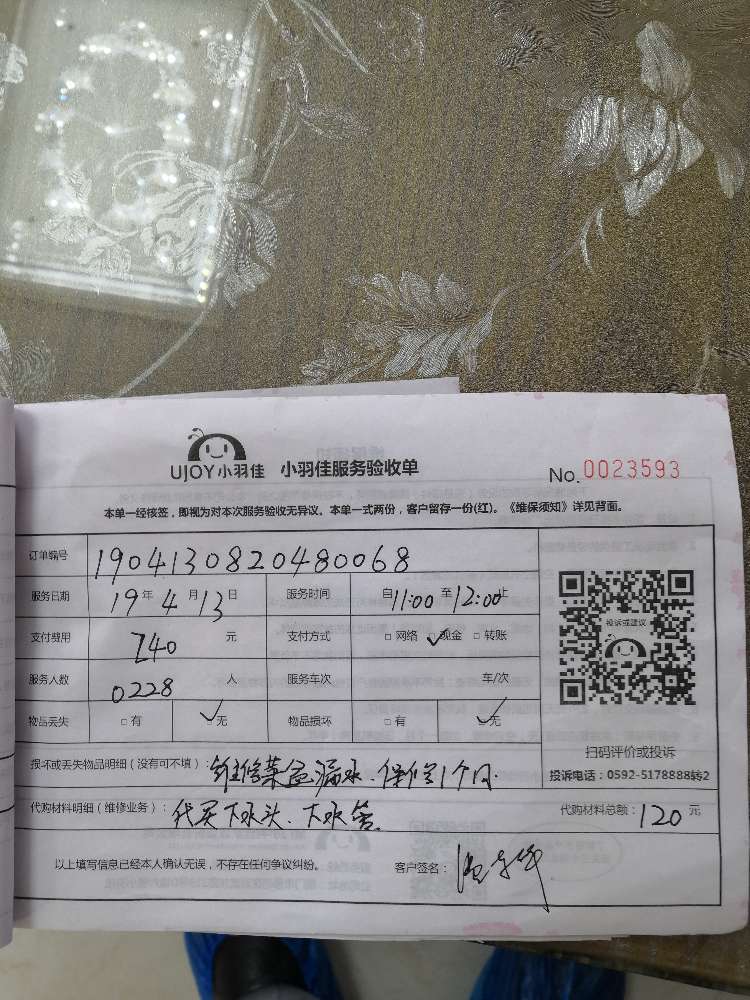 UJOY小羽佳 小羽佳服务验收单 No. 0023593
本单一经核签，即视为对本次服务验收无异议。本单一式两份，客户留存一份(红)。《维保须知》详见背面。
订单编号 1904130820480068
服务日期 19 年 4 月 13 日 服务时间 自 11:00 至 12:00 止
支付费用 240 元 支付方式 □ 网络 ✓ 现金 □ 转账
服务人数 0228 人 服务车次 车/次
物品丢失 □ 有 ✓ 无 物品损坏 □ 有 ✓ 无
投诉或建议
扫码评价或投诉
投诉电话：0592-5178888
损坏或丢失物品明细（没有可不填）：维修菜盆漏水、保修1个月
代购材料明细（维修业务）：代买下水头、下水管 代购材料总额：120 元
以上填写信息已经本人确认无误，不存在任何争议纠纷。 客户签名：